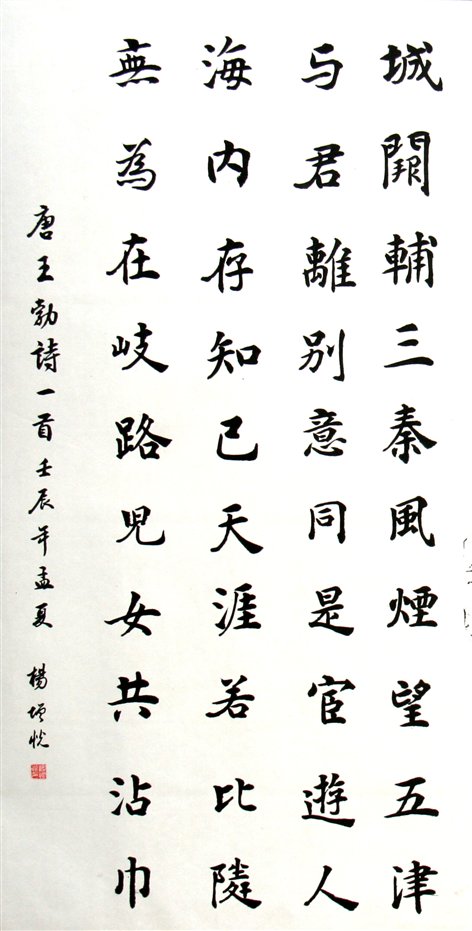 城闕輔三秦風煙望五津
与君離别意同是宦遊人
海内存知己天涯若比隣
無為在岐路兒女共沾巾
唐王勃詩一首壬辰年孟夏 楊